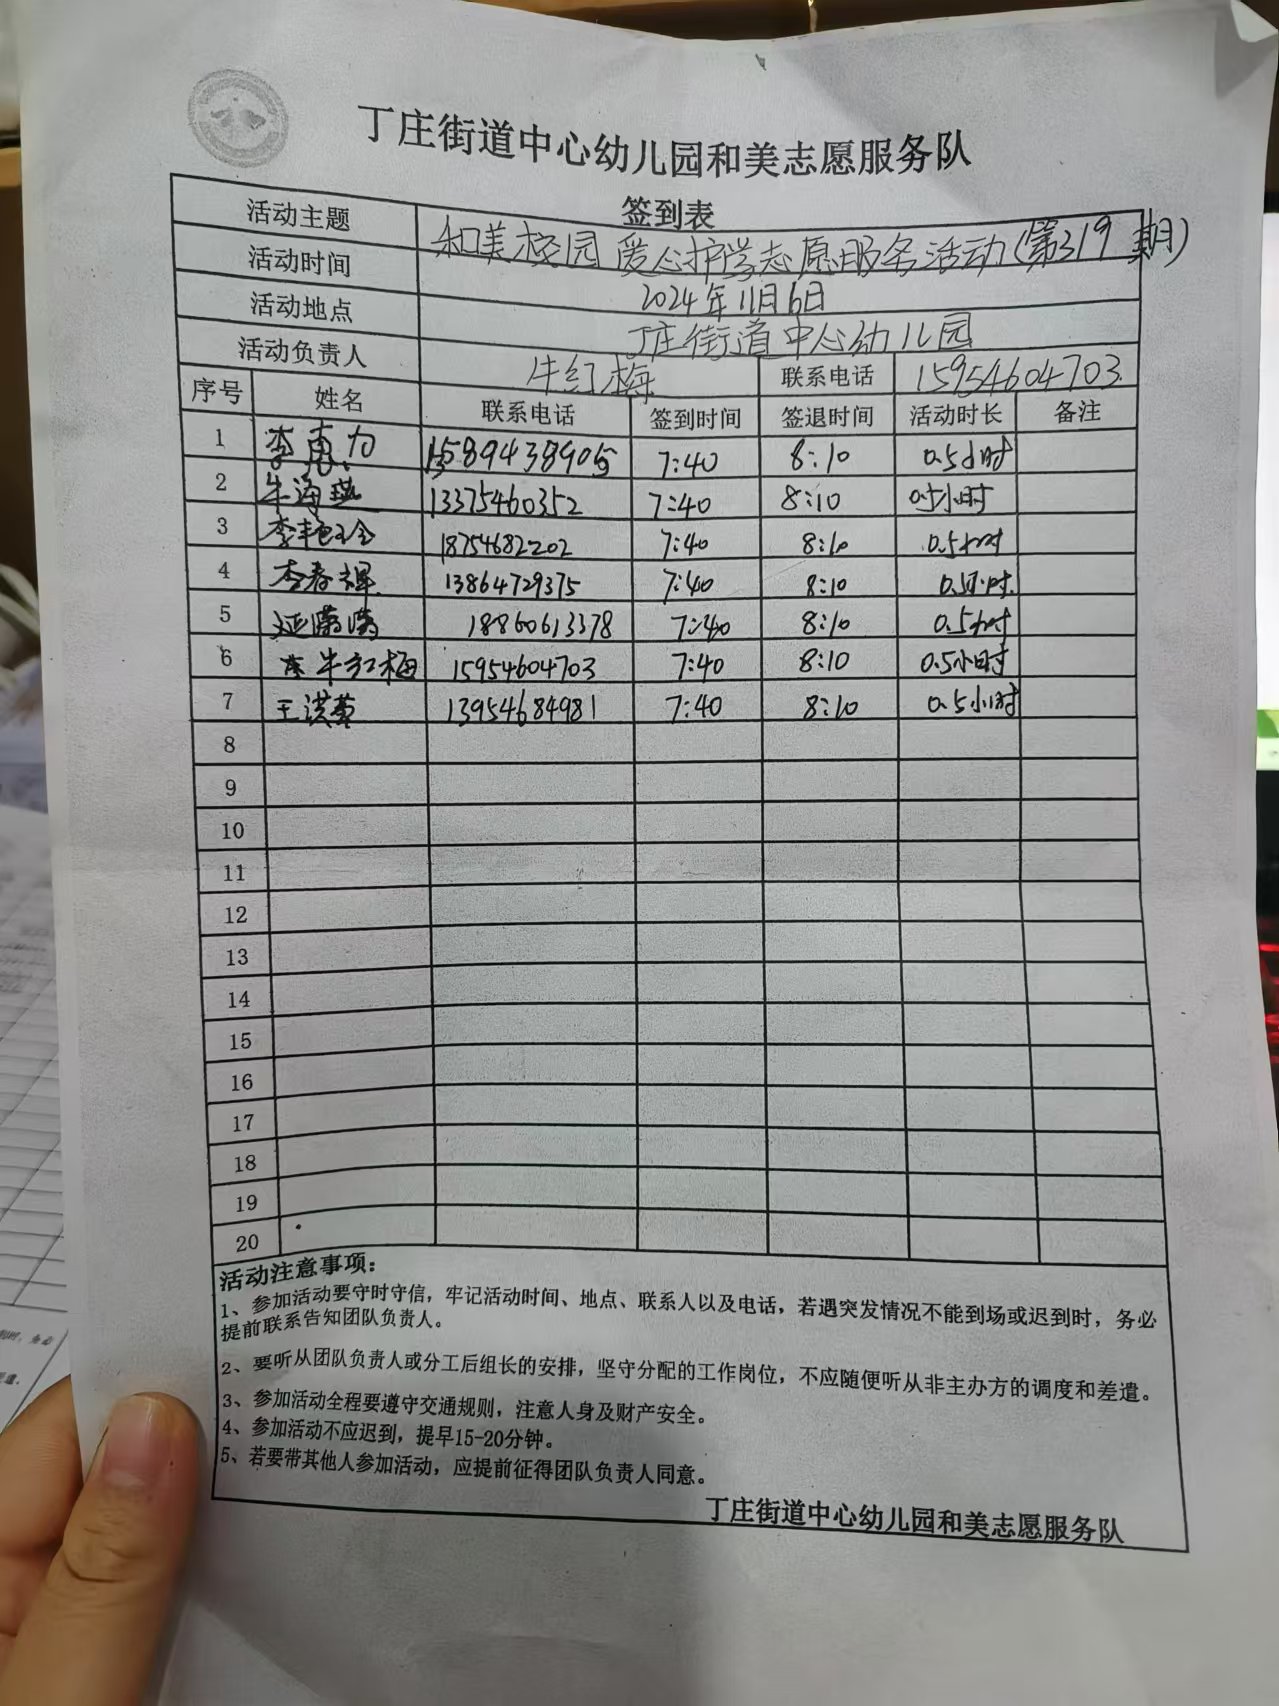 丁庄街道中心幼儿园和美志愿服务队
签到表
活动主题 和美校园 爱心护学志愿服务活动(第319期)
活动时间 2024年11月6日
活动地点 丁庄街道中心幼儿园
活动负责人 牛红梅 联系电话 15954604703
序号 姓名 联系电话 签到时间 签退时间 活动时长 备注
1 1589438905 7:40 8:10 0.5小时
2 牛海燕 13375460352 7:40 8:10 0.5小时
3 18754682202 7:40 8:10 0.5小时
4 李春辉 13864729375 7:40 8:10 0.5小时
5 延潇潇 18860613378 7:40 8:10 0.5小时
6 牛红梅 15954604703 7:40 8:10 0.5小时
7 王洪蕾 13954684981 7:40 8:10 0.5小时
8
9
10
11
12
13
14
15
16
17
18
19
20
活动注意事项：
1、参加活动要守时守信，牢记活动时间、地点、联系人以及电话，若遇突发情况不能到场或迟到时，务必
提前联系告知团队负责人。
2、要听从团队负责人或分工后组长的安排，坚守分配的工作岗位，不应随便听从非主办方的调度和差遣。
3、参加活动全程要遵守交通规则，注意人身及财产安全。
4、参加活动不应迟到，提早15-20分钟。
5、若要带其他人参加活动，应提前征得团队负责人同意。
丁庄街道中心幼儿园和美志愿服务队